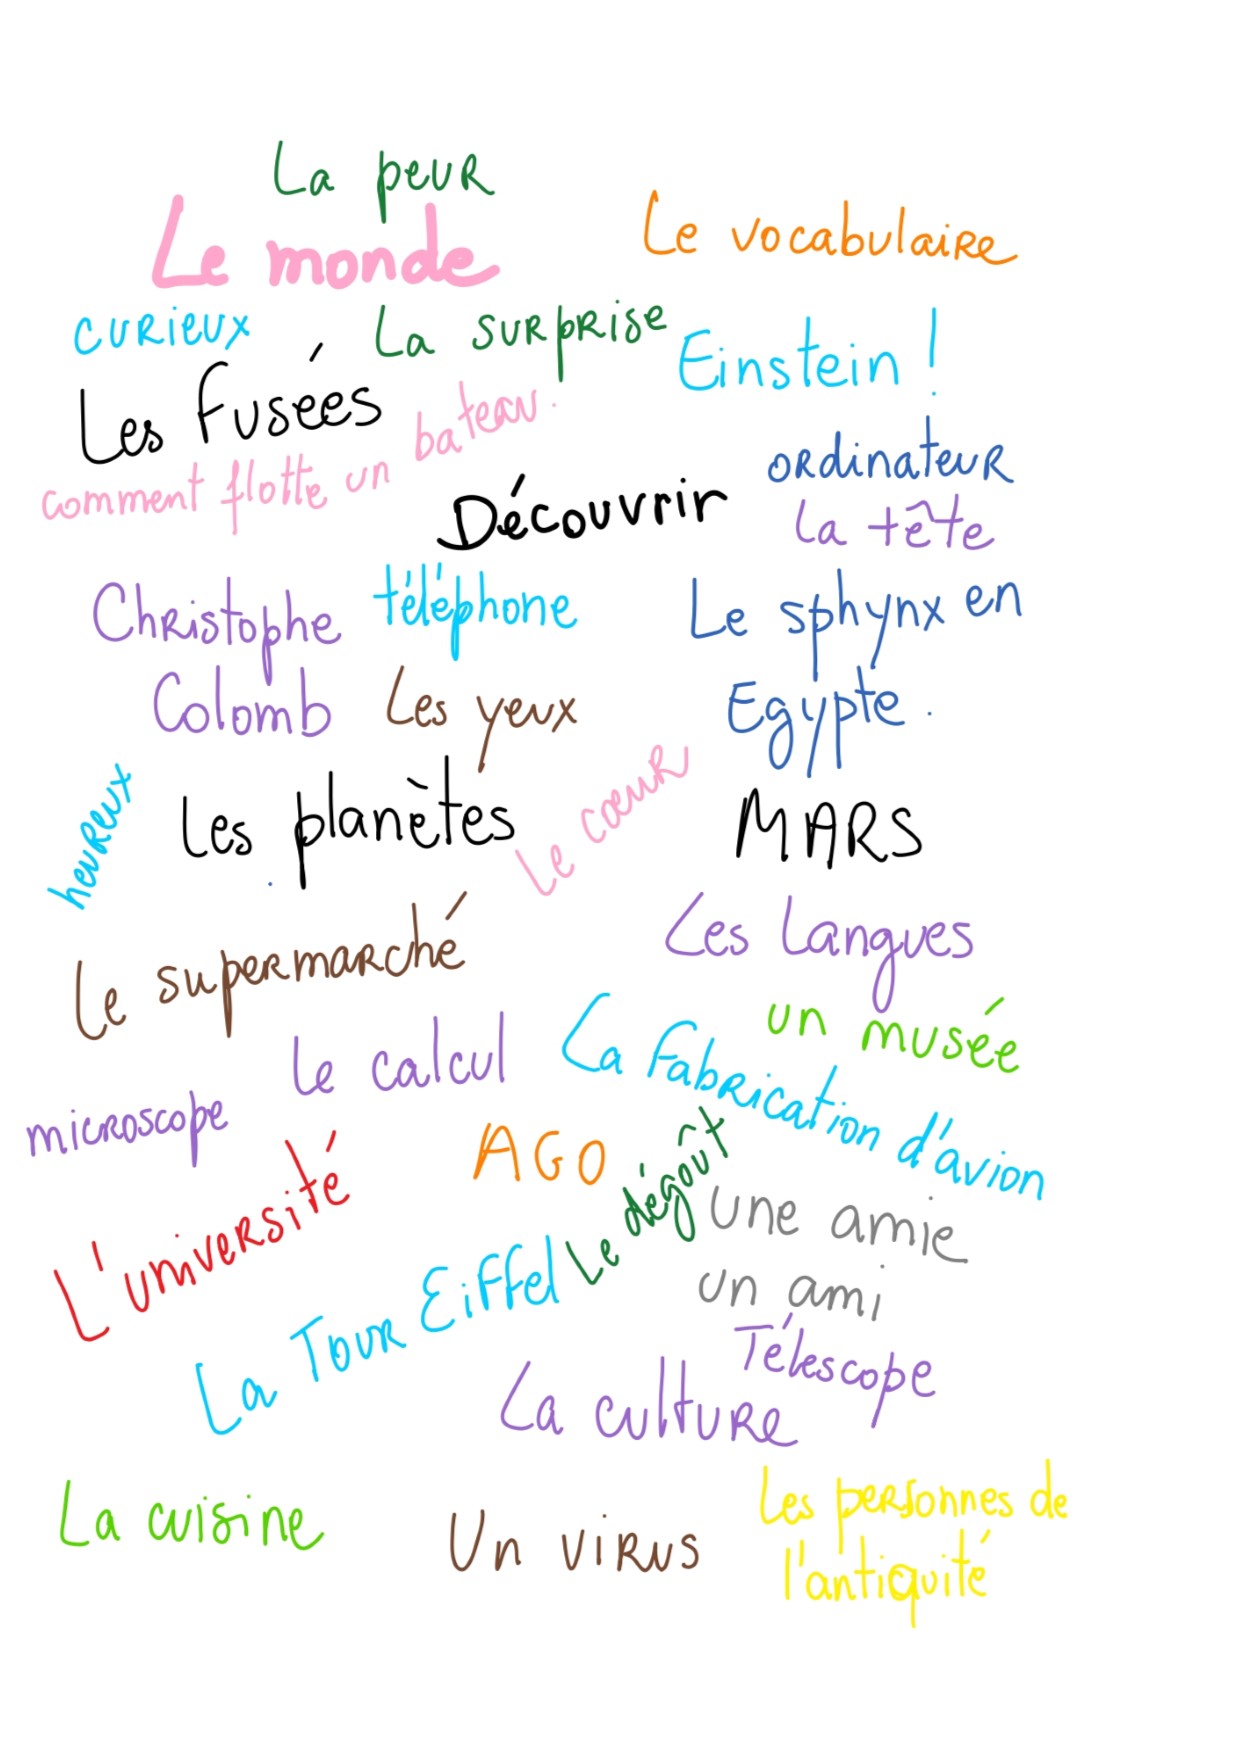 La peur
Le monde
Le vocabulaire
curieux
La surprise
Einstein !
Les fusées
comment flotte un bateau.
ordinateur
Découvrir
la tête
Christophe
Colomb
téléphone
Le sphynx en
Egypte.
Les yeux
heureux
Les planètes
Le cœur
MARS
Le supermarché
Les langues
un musée
le calcul
La fabrication d'avion
microscope
AGO
L'université
Le dégoût
une amie
un ami
La Tour Eiffel
Télescope
La culture
La cuisine
Un virus
Les personnes de
l'antiquité